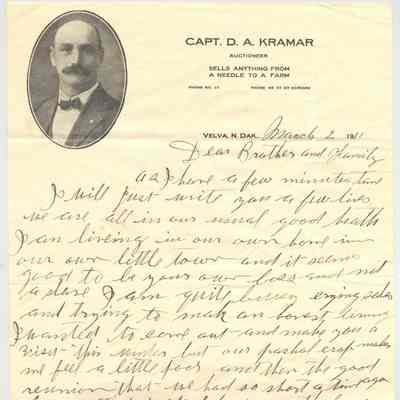 CAPT. D. A. KRAMAR
AUCTIONEER
SELLS ANYTHING FROM
A NEEDLE TO A FARM
PHONE NO. 17
VELVA, N. DAK. March 2 1911
Dear Brother and Family
as I have a few minutes time
I will just write you a few lines
we are all in our usual good health
I am liveing in our own home in
our own little town and it seems
good to be your own boss and not
a slave I am quite bussy crying sales
and trying to make an honest living
I wanted to come out and make you a
visit this winter but our parshal crop makes
me feel a little poor and then the good
reunion that we had so short a time ago